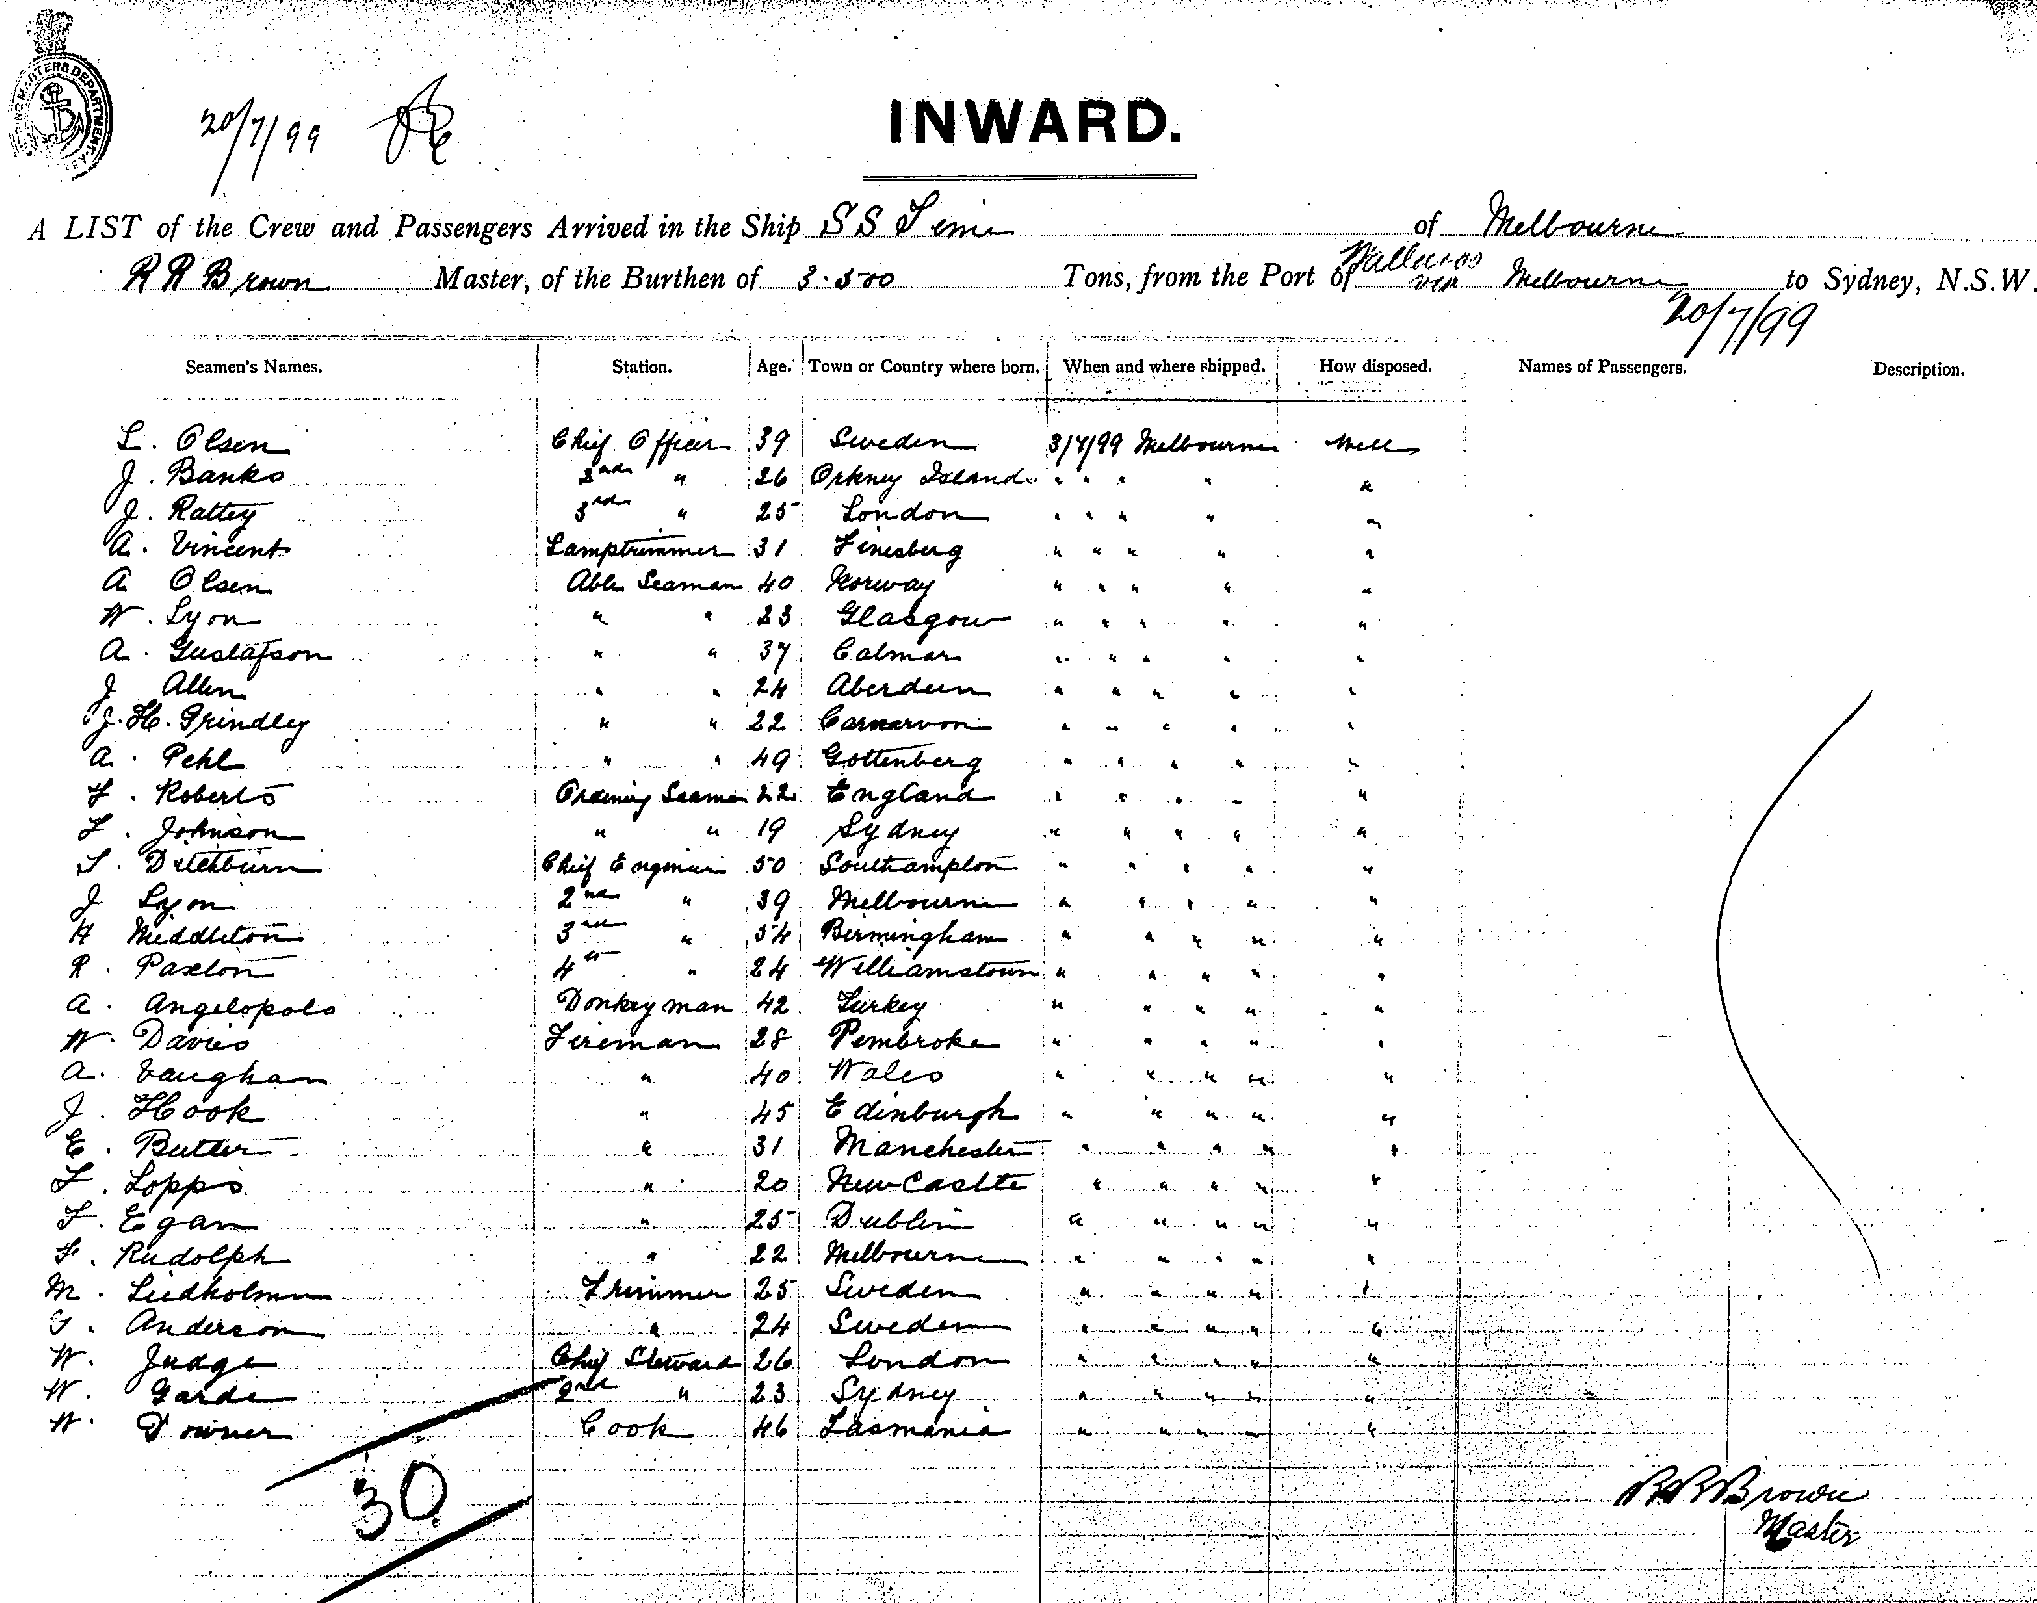 MASTERS DEPARTMENT
20/7/99
INWARD.
A LIST of the Crew and Passengers Arrived in the Ship S S Time of Melbourne
R R Brown Master, of the Burthen of 3.500 Tons, from the Port of via Melbourne to Sydney, N.S.W.
20/7/99
Seamen's Names. Station. Age. Town or Country where born. When and where shipped. How disposed. Names of Passengers. Description.
L. Olsen Chief Officer 39 Sweden 3/7/99 Melbourne Well
J. Banks 2nd " 26 Orkney Island " " " " "
J. Rattey 3rd " 25 London " " " " "
A. Vincent Lamptrimmer 31 Finesberg " " " " "
A Olsen Able Seaman 40 Norway " " " " "
W. Lyon " " 23 Glasgow " " " " "
A. Gustafson " " 37 Calmar " " " " "
J Allen " " 24 Aberdeen " " " " "
J. H. Grindley " " 22 Carnarvon " " " " "
A. Pehl " " 49 Gottenberg " " " " "
F. Roberts Ordinary Seaman 22 England " " " " "
F. Johnson " " 19 Sydney " " " " "
S. Ditchburn Chief Engineer 50 Southampton " " " " "
J Lyon 2nd " 39 Melbourne " " " " "
H Middleton 3rd " 54 Birmingham " " " " "
R. Paxton 4th " 24 Williamstown " " " " "
A. Angelopolo Donkeyman 42 Turkey " " " " "
W. Davies Fireman 28 Pembroke " " " " "
A. Vaughan " 40 Wales " " " " "
J. Hook " 45 Edinburgh " " " " "
E. Butler " 31 Manchester " " " " "
F. Lopps " 20 NewCastle " " " " "
F. Egan " 25 Dublin " " " " "
F. Rudolph " 22 Melbourne " " " " "
M. Liedholm Trimmer 25 Sweden " " " " "
G. Anderson " 24 Sweden " " " " "
W. Judge Chief Steward 26 London " " " " "
W. Garde 2nd " 23 Sydney " " " " "
W. Downer Cook 46 Tasmania " " " " "
30
R R Brown
Master